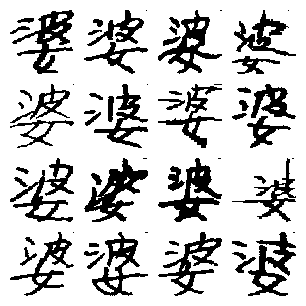 婆婆婆婆
婆婆婆婆
婆婆婆婆
婆婆婆婆